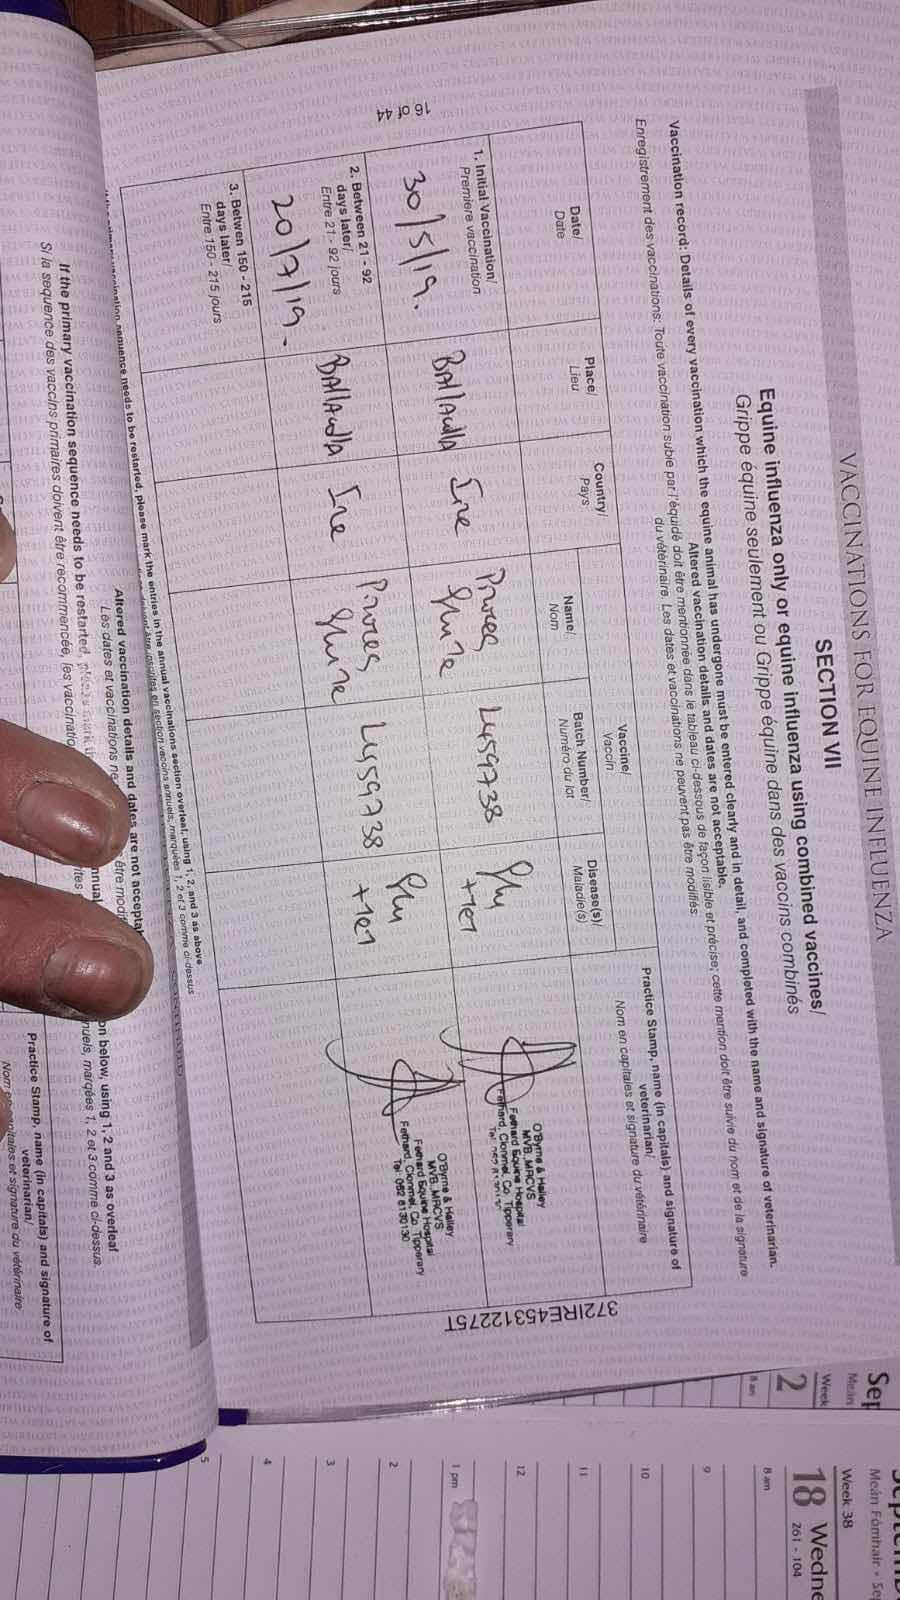 VACCINATIONS FOR EQUINE INFLUENZA
SECTION VII
Equine influenza only or equine influenza using combined vaccines/
Grippe équine seulement ou Grippe équine dans des vaccins combinés
Vaccination record: Details of every vaccination which the equine animal has undergone must be entered clearly and in detail, and completed with the name and signature of veterinarian.
Altered vaccination details and dates are not acceptable.
Enregistrement des vaccinations: Toute vaccination subie par l'équidé doit être mentionnée dans le tableau ci-dessous de façon lisible et précise; cette mention doit être suivie du nom et de la signature
du vétérinaire. Les dates et vaccinations ne peuvent pas être modifiés.
Date/
Date
Place/
Lieu
Country/
Pays
Vaccine/
Vaccin
Name/
Nom
Batch Number/
Numéro du lot
Disease(s)/
Maladie(s)
Practice Stamp, name (in capitals) and signature of
veterinarian/
Nom en capitales et signature du vétérinaire
1. Initial Vaccination/
Premiere vaccination
30/5/19.
Ire
L459738
Flu
+ Tet
O'Byrne & Halley
MVB., MRCVS
Fethard Equine Hospital
Fethard, Clonmel, Co. Tipperary
2. Between 21 - 92
days later/
Entre 21 - 92 jours
20/7/19.
Ire
L459738
Flu
+ Tet
O'Byrne & Halley
MVB., MRCVS
Fethard Equine Hospital
Fethard, Clonmel, Co. Tipperary
Tel: 052 6130130
3. Betwen 150 - 215
days later/
Entre 150 - 215 jours
16 of 44
372IRE45312275T
vaccination sequence needs to be restarted, please mark the entries in the annual vaccinations section overleaf, using 1, 2, and 3 as above
Altered vaccination details and dates are not acceptab
Les dates et vaccinations ne être modi
If the primary vaccination sequence needs to be restarted,
on below, using 1, 2 and 3 as overleaf
Si la sequence des vaccins primaires doivent être recommencée, les vaccinatio
nuels, marqées 1, 2 et 3 comme ci-dessus.
Practice Stamp, name (in capitals) and signature of
veterinarian/
et signature du vétérinaire
Sep
Meán
Week
2
8 am
Meán Fómhair
Week 38
18 Wedne
261 - 104
8 am
9
10
11
12
1 pm
2
3
4
5